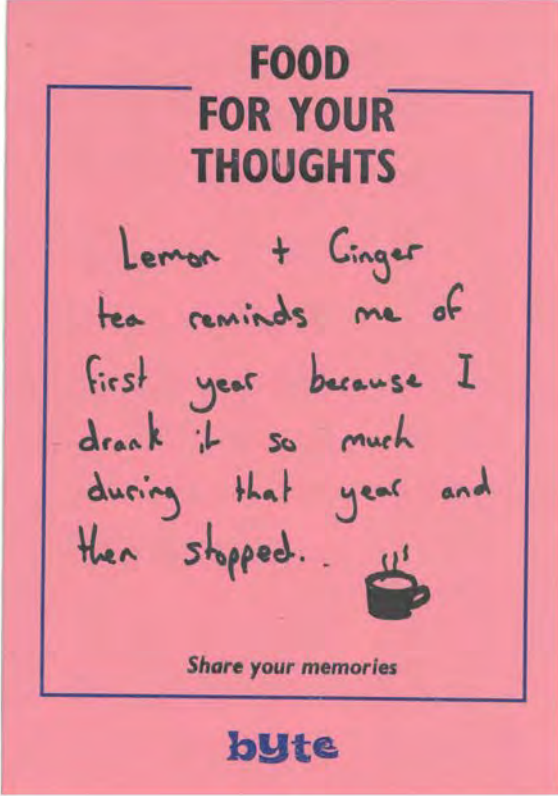 FOOD
FOR YOUR
THOUGHTS
Lemon + Ginger
tea reminds me of
first year because I
drank it so much
during that year and
then stopped..
Share your memories
byte